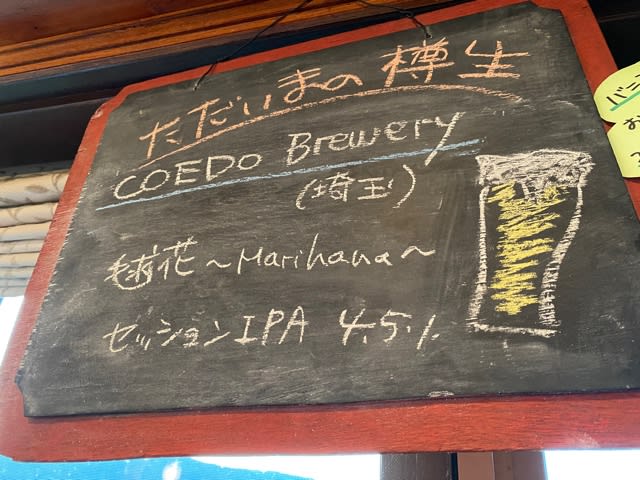 ただいまの樽生
COEDO Brewery
(埼玉)
毬花～Marihana～
セッションIPA 4.5%
バ
お